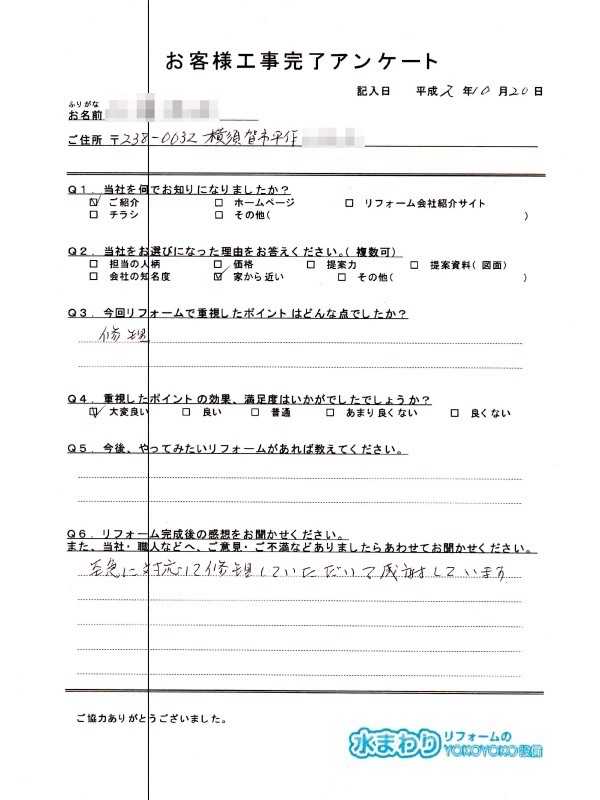 お客様工事完了アンケート
記入日 平成 2 年 10 月 20 日
ふりがな
お名前
ご住所 〒238-0032 横須賀市平作
Q1. 当社を何でお知りになりましたか？
☑ ご紹介 □ ホームページ □ リフォーム会社紹介サイト
□ チラシ □ その他( )
Q2. 当社をお選びになった理由をお答えください。(複数可)
□ 担当の人柄 □ 価格 □ 提案力 □ 提案資料(図面)
□ 会社の知名度 ☑ 家から近い □ その他( )
Q3. 今回リフォームで重視したポイントはどんな点でしたか？
修理
Q4. 重視したポイントの効果、満足度はいかがでしたでしょうか？
☑ 大変良い □ 良い □ 普通 □ あまり良くない □ 良くない
Q5. 今後、やってみたいリフォームがあれば教えてください。
Q6. リフォーム完成後の感想をお聞かせください。
また、当社・職人などへ、ご意見・ご不満などありましたらあわせてお聞かせください。
至急に対応して修理していただいて感謝しています
ご協力ありがとうございました。
水まわりリフォームのYOKOYOKO設備